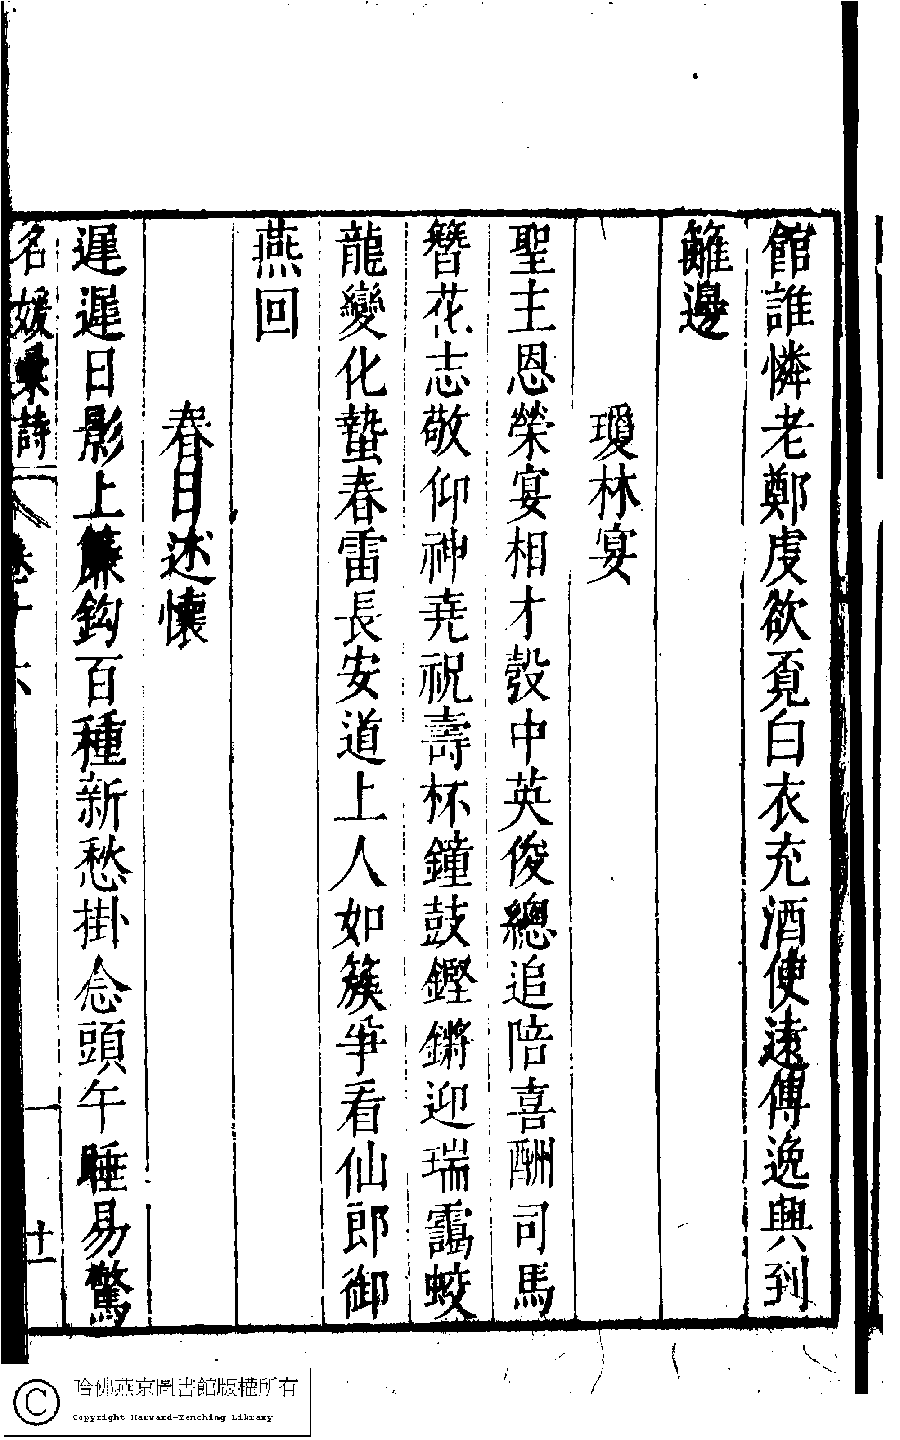 館誰憐老鄭虔欲覔白衣充酒使遠傳逸興到
籬邊
瓊林宴
聖主恩榮宴相才彀中英俊總追陪喜酬司馬
簪花志敬仰神堯祝壽杯鐘鼓鏗鏘迎瑞靄蛟
龍變化蟄春雷長安道上人如簇爭看仙郎御
燕回
春日述懷
遲遲日影上簾鈎百種新愁掛念頭午睡易驚
名媛彙詩 卷十六 十一
哈佛燕京圖書館版權所有
Copyright Harvard-Yenching Library